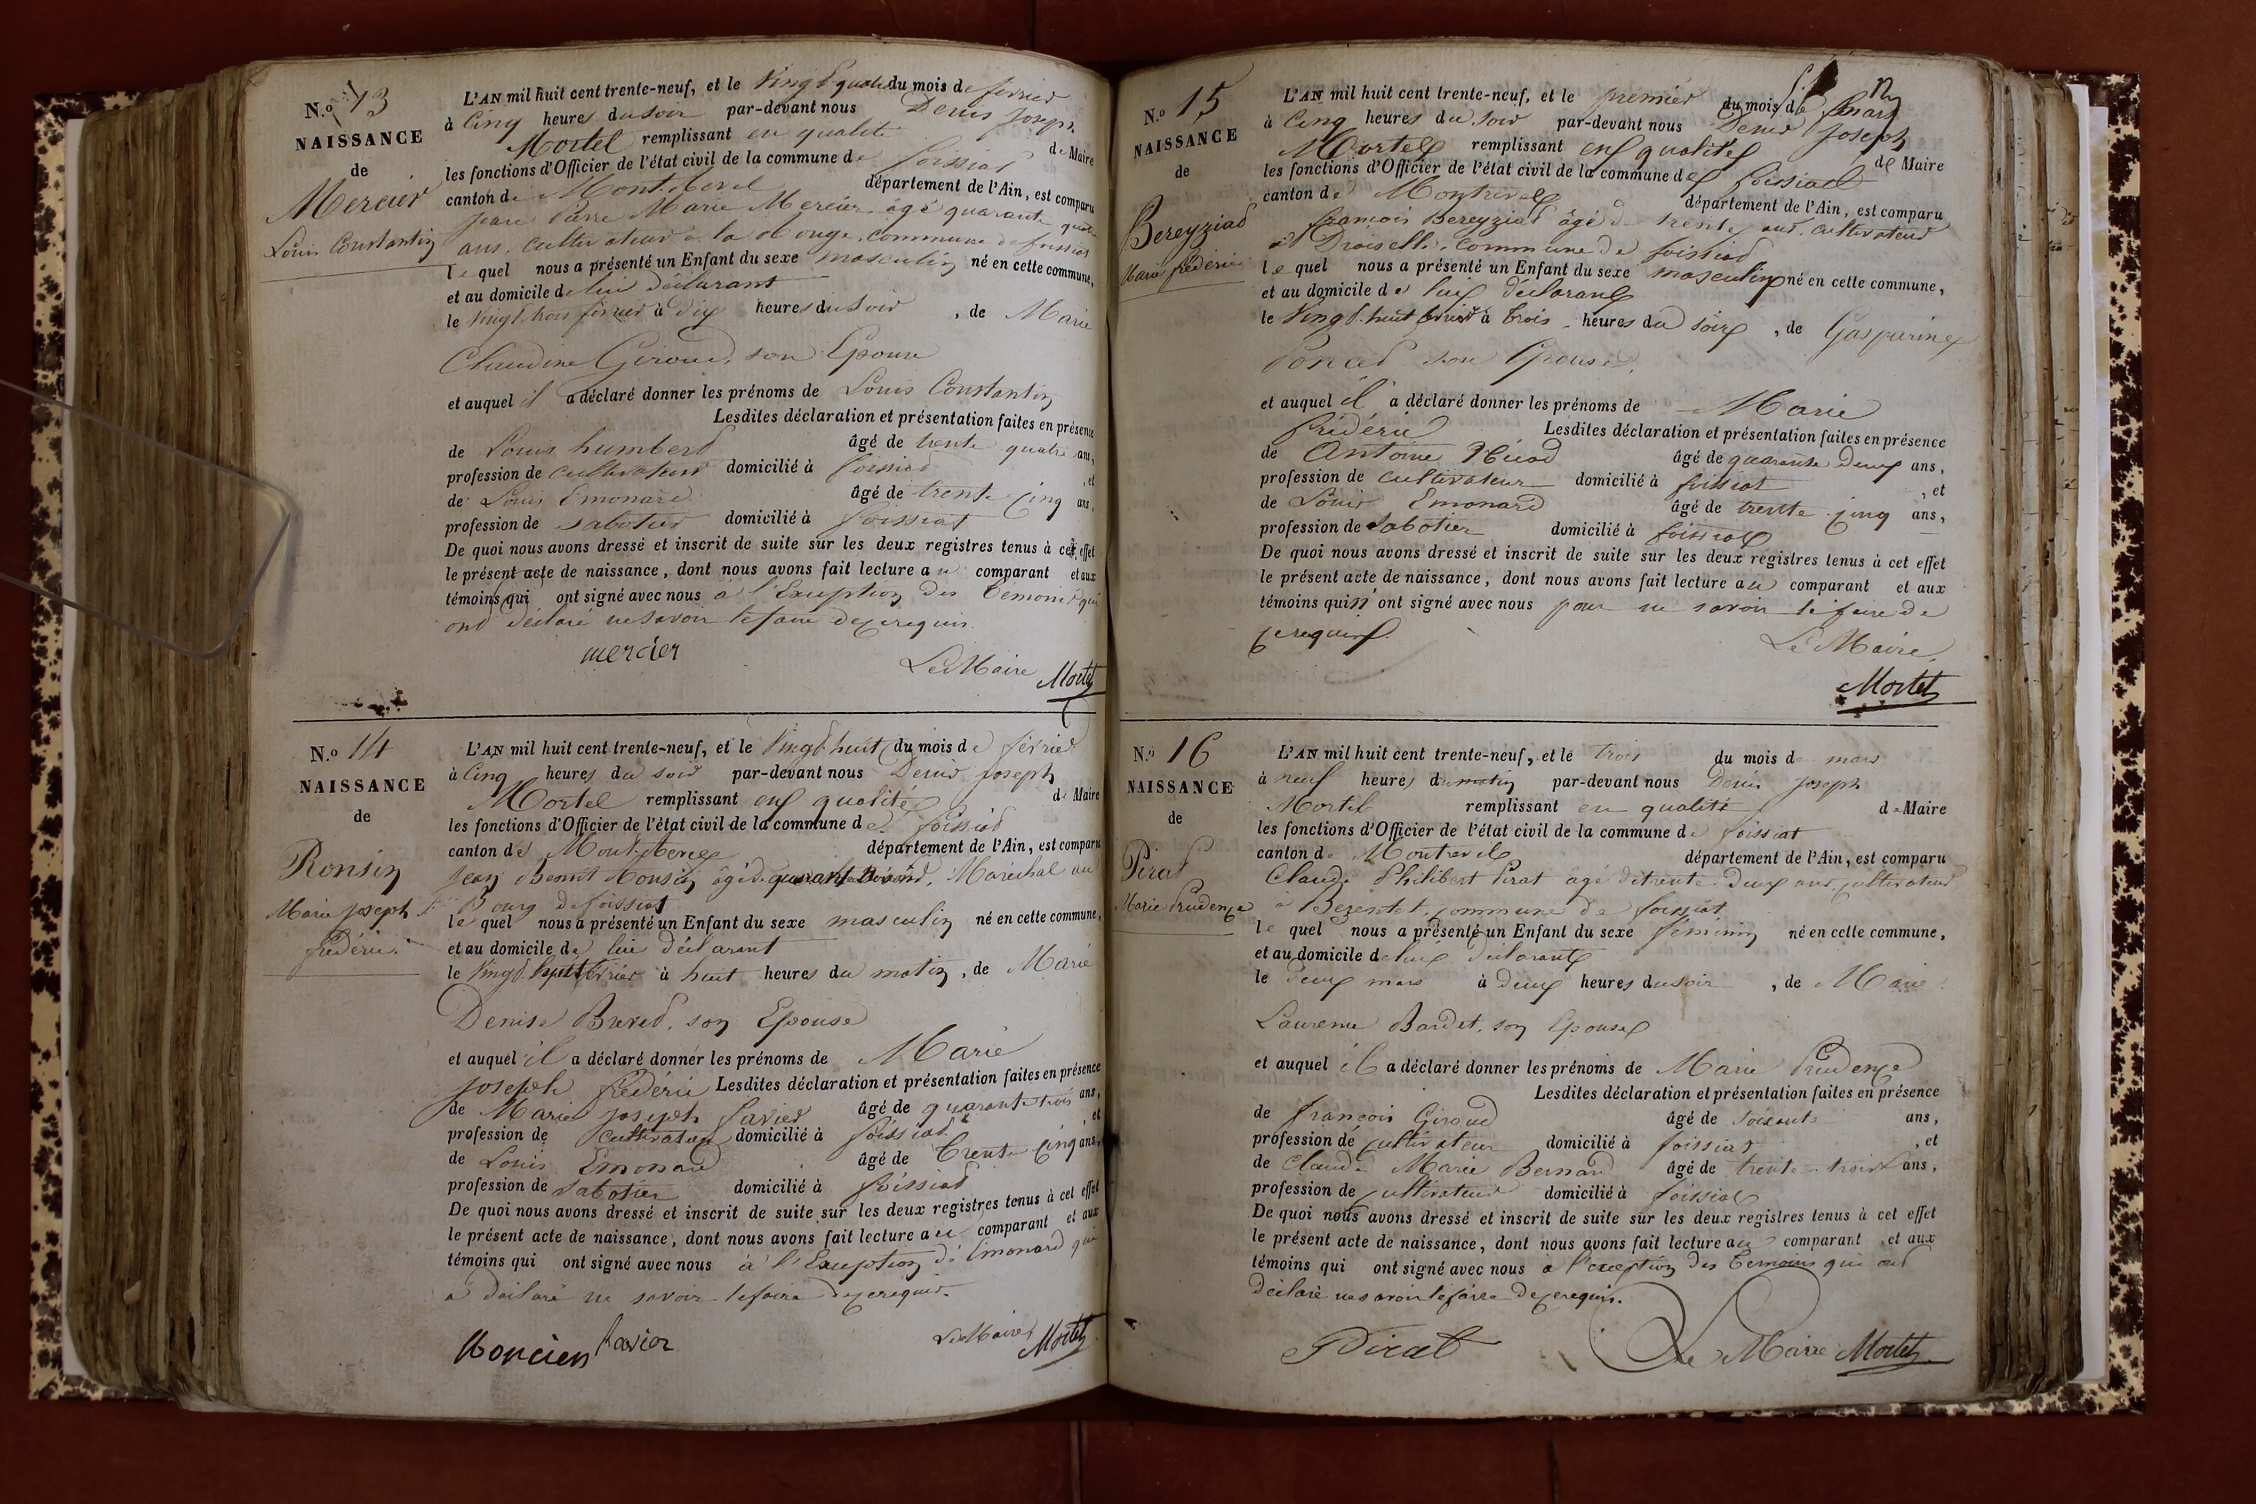 N.o 13
NAISSANCE
de
Mercier
Louis Constantin
L'AN mil huit cent trente-neuf, et le vingt quatre du mois de février
à cinq heures du soir par-devant nous Denis Joseph
Mortel remplissant en qualité de Maire
les fonctions d'Officier de l'état civil de la commune de foissiat
canton de Montrevel département de l'Ain, est comparu
Pierre Marie Mercier âgé quarante quatre
ans, cultivateur a la commune de foissiat
le quel nous a présenté un Enfant du sexe masculin né en cette commune,
et au domicile de lui déclarant
le vingt trois février à dix heures du soir , de Marie
Claudine Giroud, son Epouse
et auquel il a déclaré donner les prénoms de Louis Constantin
Lesdites déclaration et présentation faites en présence
de Louis humbert âgé de trente quatre ans,
profession de cultivateur domicilié à foissiat , et
de Louis Emonard âgé de trente cinq ans,
profession de sabotier domicilié à foissiat
De quoi nous avons dressé et inscrit de suite sur les deux registres tenus à cet effet
le présent acte de naissance, dont nous avons fait lecture au comparant et aux
témoins qui ont signé avec nous à l'Exception des témoins qui
ont déclaré ne savoir le faire de ce requis.
mercier
Le Maire Mortel
N.o 14
NAISSANCE
de
Ronsin
Marie Joseph
frédéric
L'AN mil huit cent trente-neuf, et le vingt huit du mois de février
à cinq heures du soir par-devant nous Denis Joseph
Mortel remplissant en qualité de Maire
les fonctions d'Officier de l'état civil de la commune de foissiat
canton de Montrevel département de l'Ain, est comparu
Jean Benoit Ronsin âgé de quarante ans, Maréchal au
Bourg de foissiat
le quel nous a présenté un Enfant du sexe masculin né en cette commune,
et au domicile de lui déclarant
le vingt huit février à huit heures du matin , de Marie
Denise Buvet, son Epouse
et auquel il a déclaré donner les prénoms de Marie
Joseph frédéric Lesdites déclaration et présentation faites en présence
de Marie Joseph favier âgé de quarante trois ans,
profession de cultivateur domicilié à foissiat , et
de Louis Emonard âgé de trente cinq ans,
profession de sabotier domicilié à foissiat
De quoi nous avons dressé et inscrit de suite sur les deux registres tenus à cet effet
le présent acte de naissance, dont nous avons fait lecture au comparant et aux
témoins qui ont signé avec nous à l'Exception de Emonard qui
a déclaré ne savoir le faire de ce requis.
Roncien favier
Le Maire Mortel
N.o 15
NAISSANCE
de
Bereyziat
Marie frédéric
L'AN mil huit cent trente-neuf, et le premier du mois de mars
à cinq heures du soir par-devant nous Denis Joseph
Mortel remplissant en qualité de Maire
les fonctions d'Officier de l'état civil de la commune de foissiat
canton de Montrevel département de l'Ain, est comparu
françois Bereyziat âgé de trente ans, cultivateur
à Droiselle, commune de foissiat
le quel nous a présenté un Enfant du sexe masculin né en cette commune,
et au domicile de lui déclarant
le vingt huit février à trois heures du soir , de Gasparine
Poncet son Epouse,
et auquel il a déclaré donner les prénoms de Marie
frédéric Lesdites déclaration et présentation faites en présence
de Antoine Nicod âgé de quarante deux ans,
profession de cultivateur domicilié à foissiat , et
de Louis Emonard âgé de trente cinq ans,
profession de sabotier domicilié à foissiat
De quoi nous avons dressé et inscrit de suite sur les deux registres tenus à cet effet
le présent acte de naissance, dont nous avons fait lecture au comparant et aux
témoins qui n'ont signé avec nous pour ne savoir le faire de
ce requis
Le Maire,
Mortel
N.o 16
NAISSANCE
de
Pirat
Marie Prudence
L'AN mil huit cent trente-neuf, et le trois du mois de mars
à neuf heures du matin par-devant nous Denis Joseph
Mortel remplissant en qualité de Maire
les fonctions d'Officier de l'état civil de la commune de foissiat
canton de Montrevel département de l'Ain, est comparu
Claude Philibert Pirat âgé de trente deux ans, cultivateur
à Bezentet, commune de foissiat
le quel nous a présenté un Enfant du sexe féminin né en cette commune,
et au domicile de lui déclarant
le deux mars à deux heures du soir , de Marie
Laurence Bardet, son Epouse
et auquel il a déclaré donner les prénoms de Marie Prudence
Lesdites déclaration et présentation faites en présence
de françois Giroud âgé de soixante ans,
profession de cultivateur domicilié à foissiat , et
de Claude Marie Bernard âgé de trente trois ans,
profession de cultivateur domicilié à foissiat
De quoi nous avons dressé et inscrit de suite sur les deux registres tenus à cet effet
le présent acte de naissance, dont nous avons fait lecture au comparant et aux
témoins qui ont signé avec nous a l'exception des témoins qui ont
déclaré ne savoir le faire de ce requis.
Pirat
Le Maire Mortel